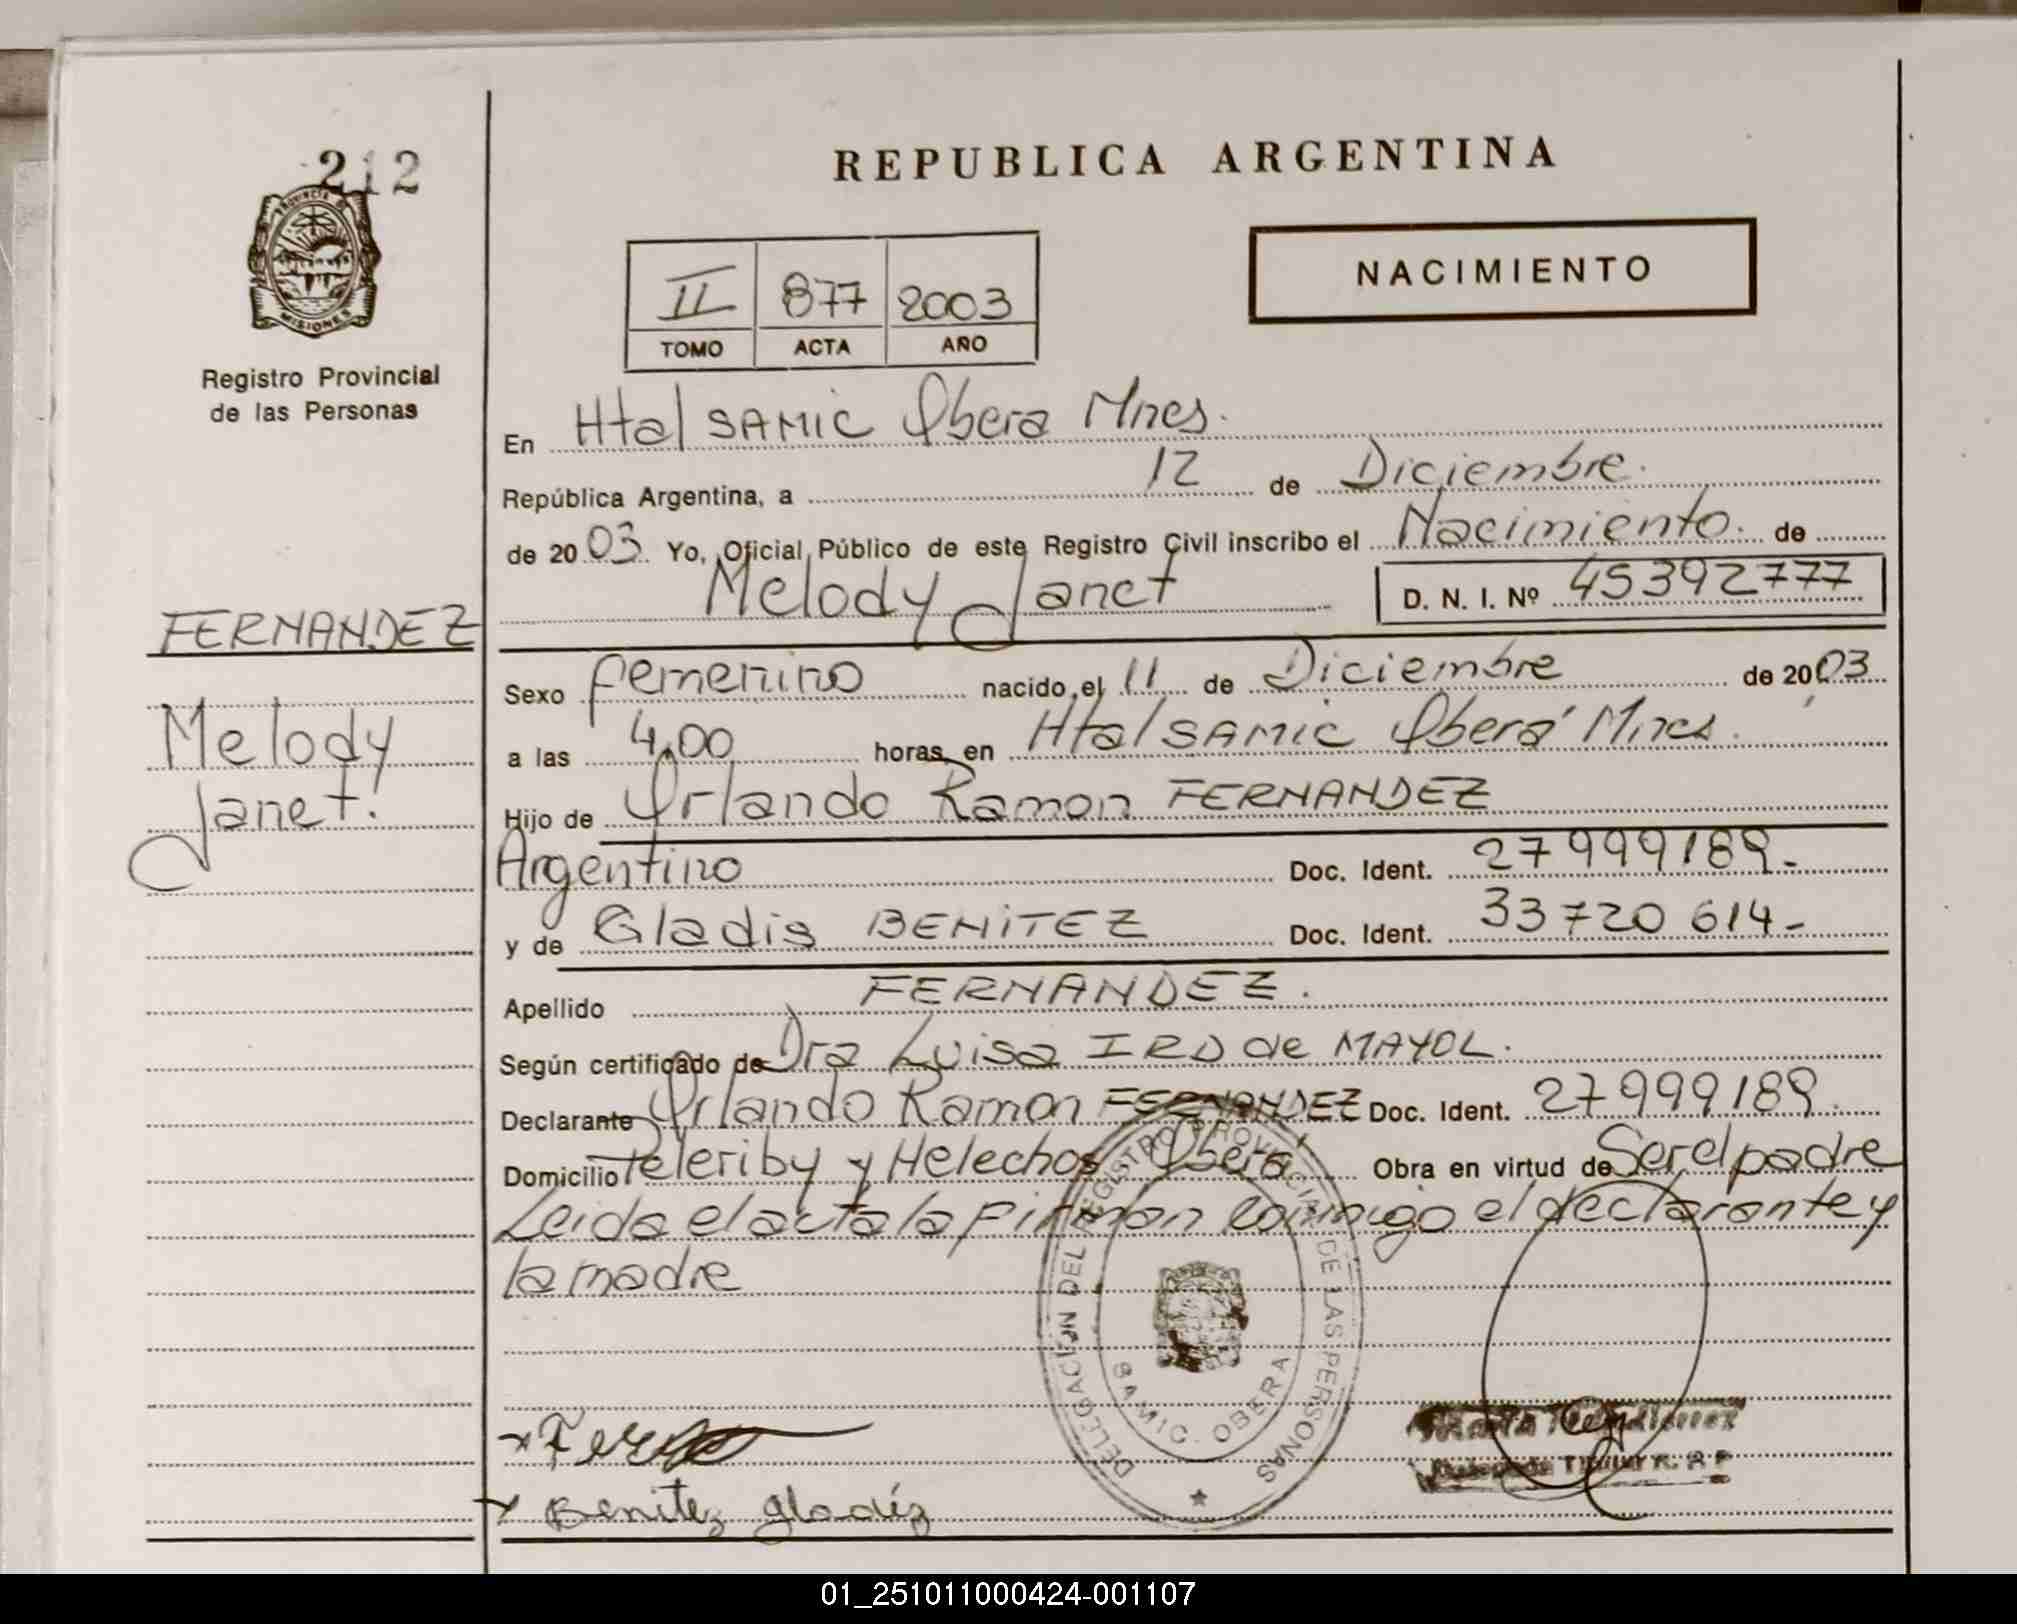 212
PROVINCIA DE
MISIONES
Registro Provincial
de las Personas
FERNANDEZ
Melody
Janet.
REPUBLICA ARGENTINA
NACIMIENTO
II 877 2003
TOMO ACTA AÑO
En Htal SAMIC Obera Mnes.
República Argentina, a 12 de Diciembre.
de 2003. Yo, Oficial Público de este Registro Civil inscribo el Nacimiento. de
Melody Janet D. N. I. Nº 45392777
Sexo femenino nacido el 11 de Diciembre de 2003
a las 4,00 horas en Htal SAMIC Oberá Mnes.
Hijo de Orlando Ramon FERNANDEZ
Argentino Doc. Ident. 27999189-
y de Gladis BENITEZ Doc. Ident. 33720614-
Apellido FERNANDEZ.
Según certificado de Dra Luisa IRD de MAYOL.
Declarante Orlando Ramon FERNANDEZ Doc. Ident. 27999189.
Domicilio Teleriby y Helechos Oberá Obra en virtud de Ser el padre
Leida el acta la firman conmigo el declarante y
la madre
DELEGACION DEL REGISTRO PROVINCIAL DE LAS PERSONAS
SAMIC. OBERA
Benitez gladiz
01_251011000424-001107